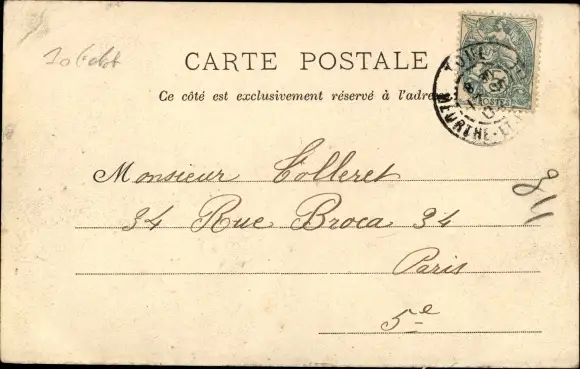 CARTE POSTALE
Ce côté est exclusivement réservé à l'adre
Monsieur Tolleret
34 Rue Broca 34
Paris
5e
POSTES
MEURTHE-ET-M